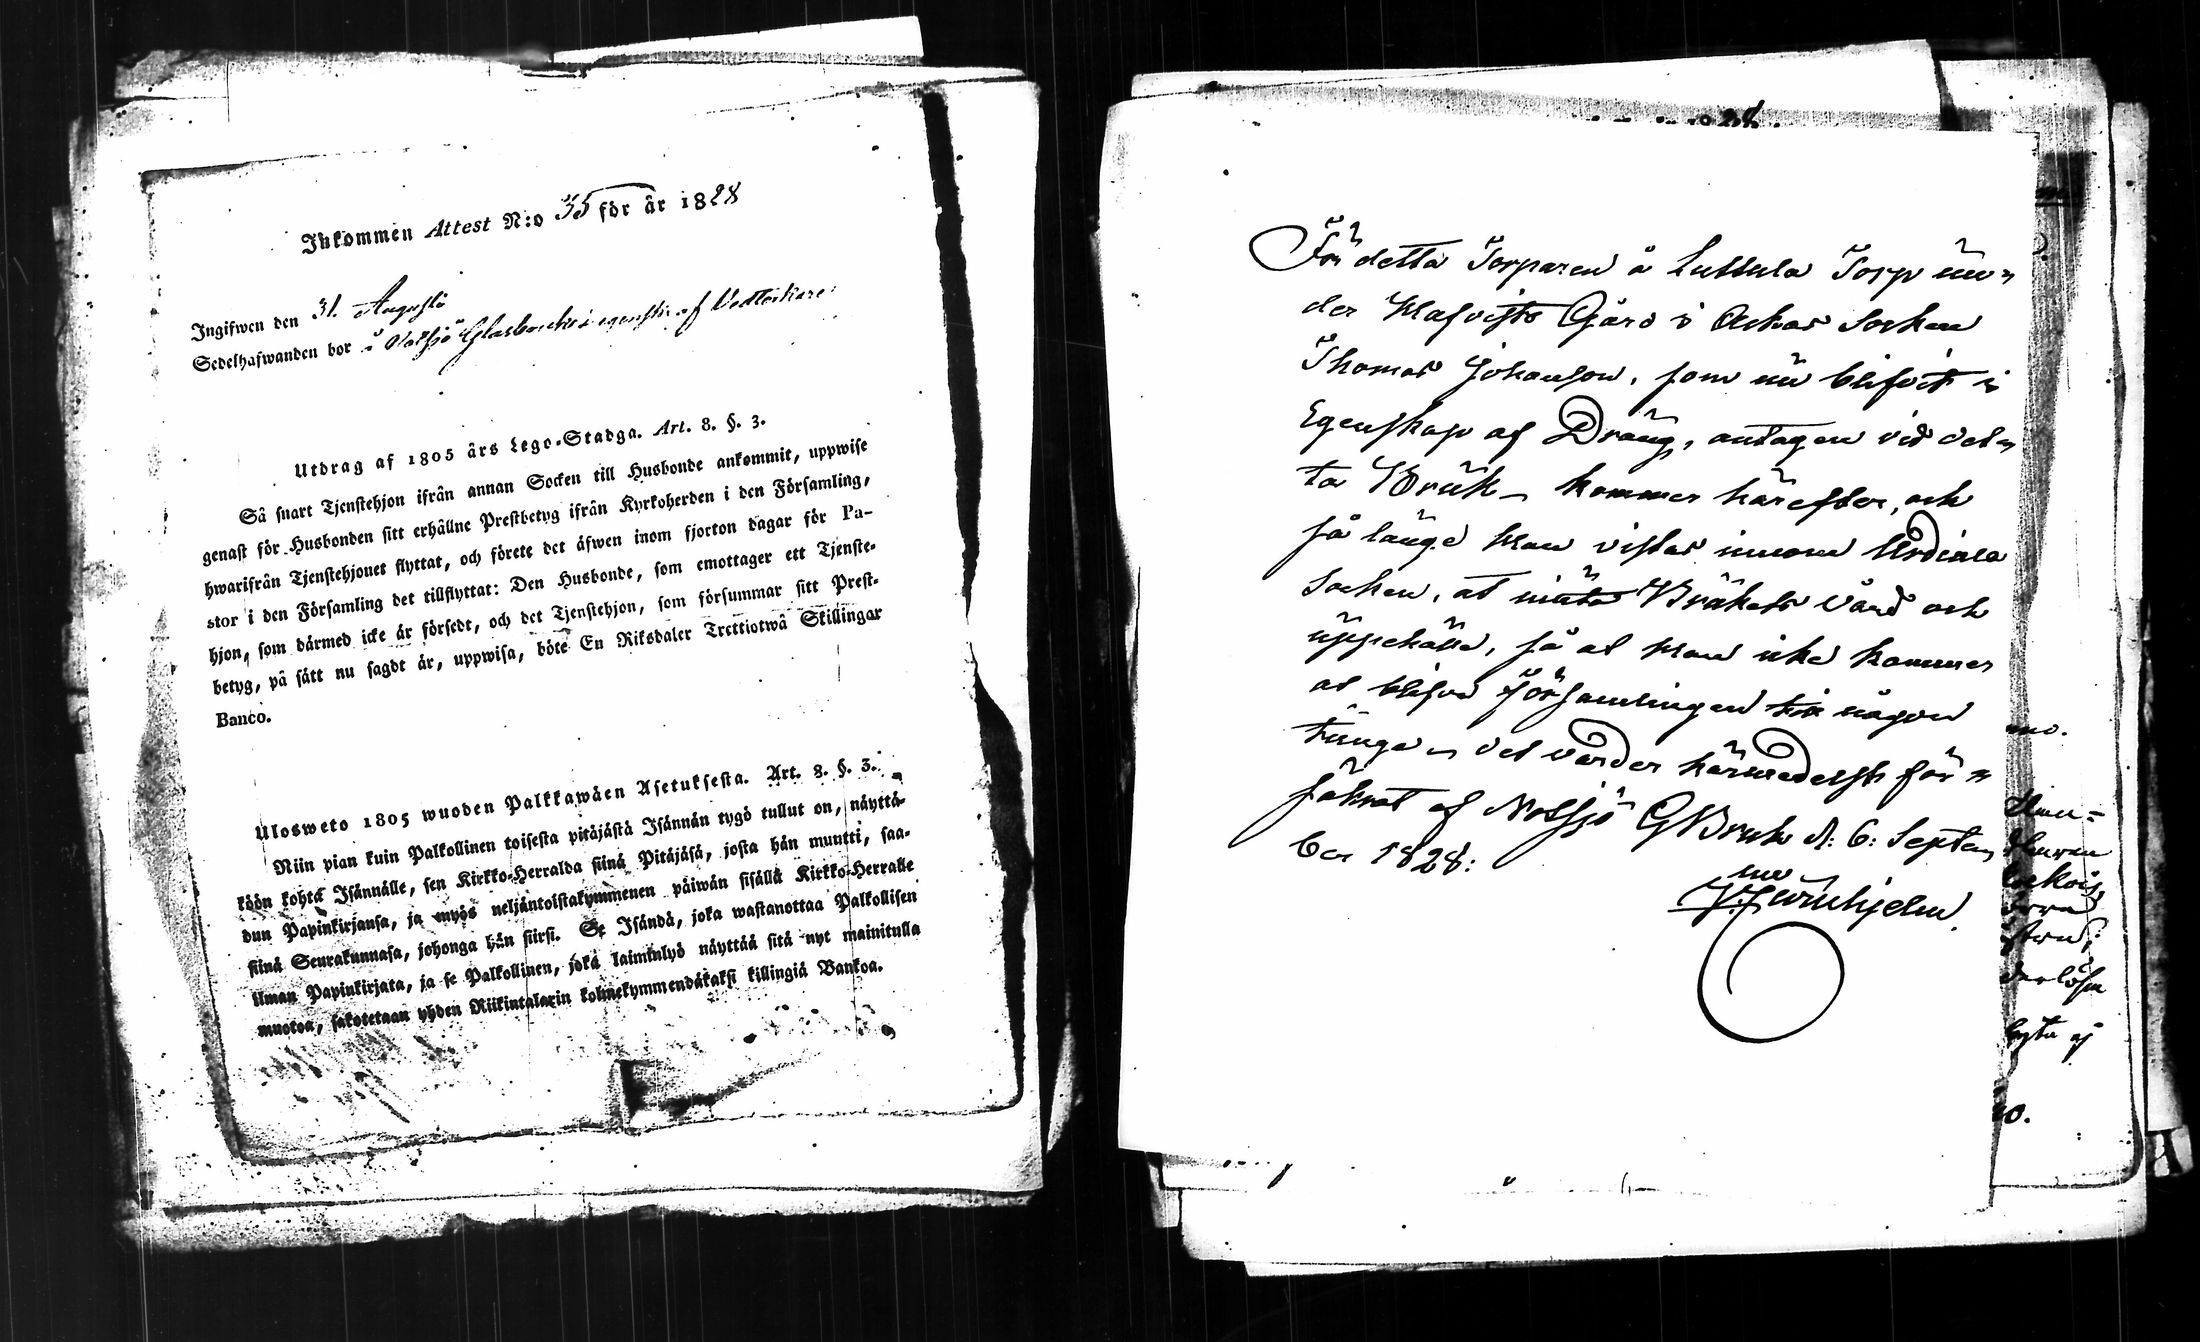 Inkommen Attest N:o 35 för år 1828
Ingifwen den 31. Augusti
Sedelhafwanden bor å Notsjö Glasbruk i egenskap af Vedtorkare
Utdrag af 1805 års Lego-Stadga. Art. 8. §. 3.
Så snart Tjenstehjon ifrån annan Socken till Husbonde ankommit, uppwise
genast för Husbonden sitt erhållne Prestbetyg ifrån Kyrkoherden i den Församling,
hwarifrån Tjenstehjonet flyttat, och förete det äfwen inom fjorton dagar för Pa-
stor i den Församling det tillflyttat: Den Husbonde, som emottager ett Tjenste-
hjon, som därmed icke är försedt, och det Tjenstehjon, som försummar sitt Prest-
betyg, på sätt nu sagdt är, uppwisa, böte En Riksdaler Trettiotwå Skillingar
Banco.
Ulosweto 1805 wuoden Palkkawäen Asetuksesta. Art. 8. §. 3.
Niin pian kuin Palkollinen toisesta pitäjästä Isännän tygö tullut on, näyttä-
köön kohta Isännälle, sen Kirkko-Herralda siinä Pitäjäsä, josta hän muutti, saa-
dun Papinkirjansa, ja myös neljäntoistakymmenen päiwän sisällä Kirkko-Herralle
siinä Seurakunnasa, johonga hän siirsi. Se Isändä, joka wastanottaa Palkollisen
ilman Papinkirjata, ja se Palkollinen, joka laiminlyö näyttää sitä nyt mainitulla
muotoa, sakotetaan yhden Riikintalarin kolmekymmendäkaksi killingiä Bankoa.
För detta Torparen å Luttula Torp un-
der Hlafvists Gård i Ackas Socken
Thomas Johansson, som nu blifvit i
Egenskap af Dräng, antagen vid det-
ta Bruk – kommer härefter, och
så länge Han vistas innom Urdiala
Socken, at niuta Brukets vård och
uppehälle, så at Han icke kommer
at blifva Församlingen till någon
tunga – det varder härmedelst för-
säkrat af Notsjö GBruk d. 6: Septem
ber 1828:
J. F. Furuhjelm.